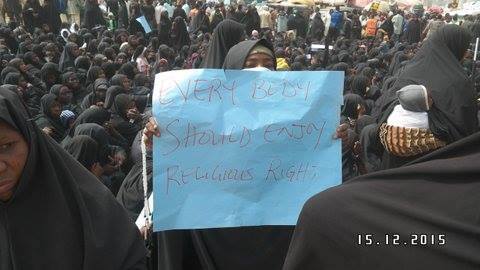 EVERY BODY
SHOULD ENJOY
RELIGIOUS RIGHT
15.12.2015